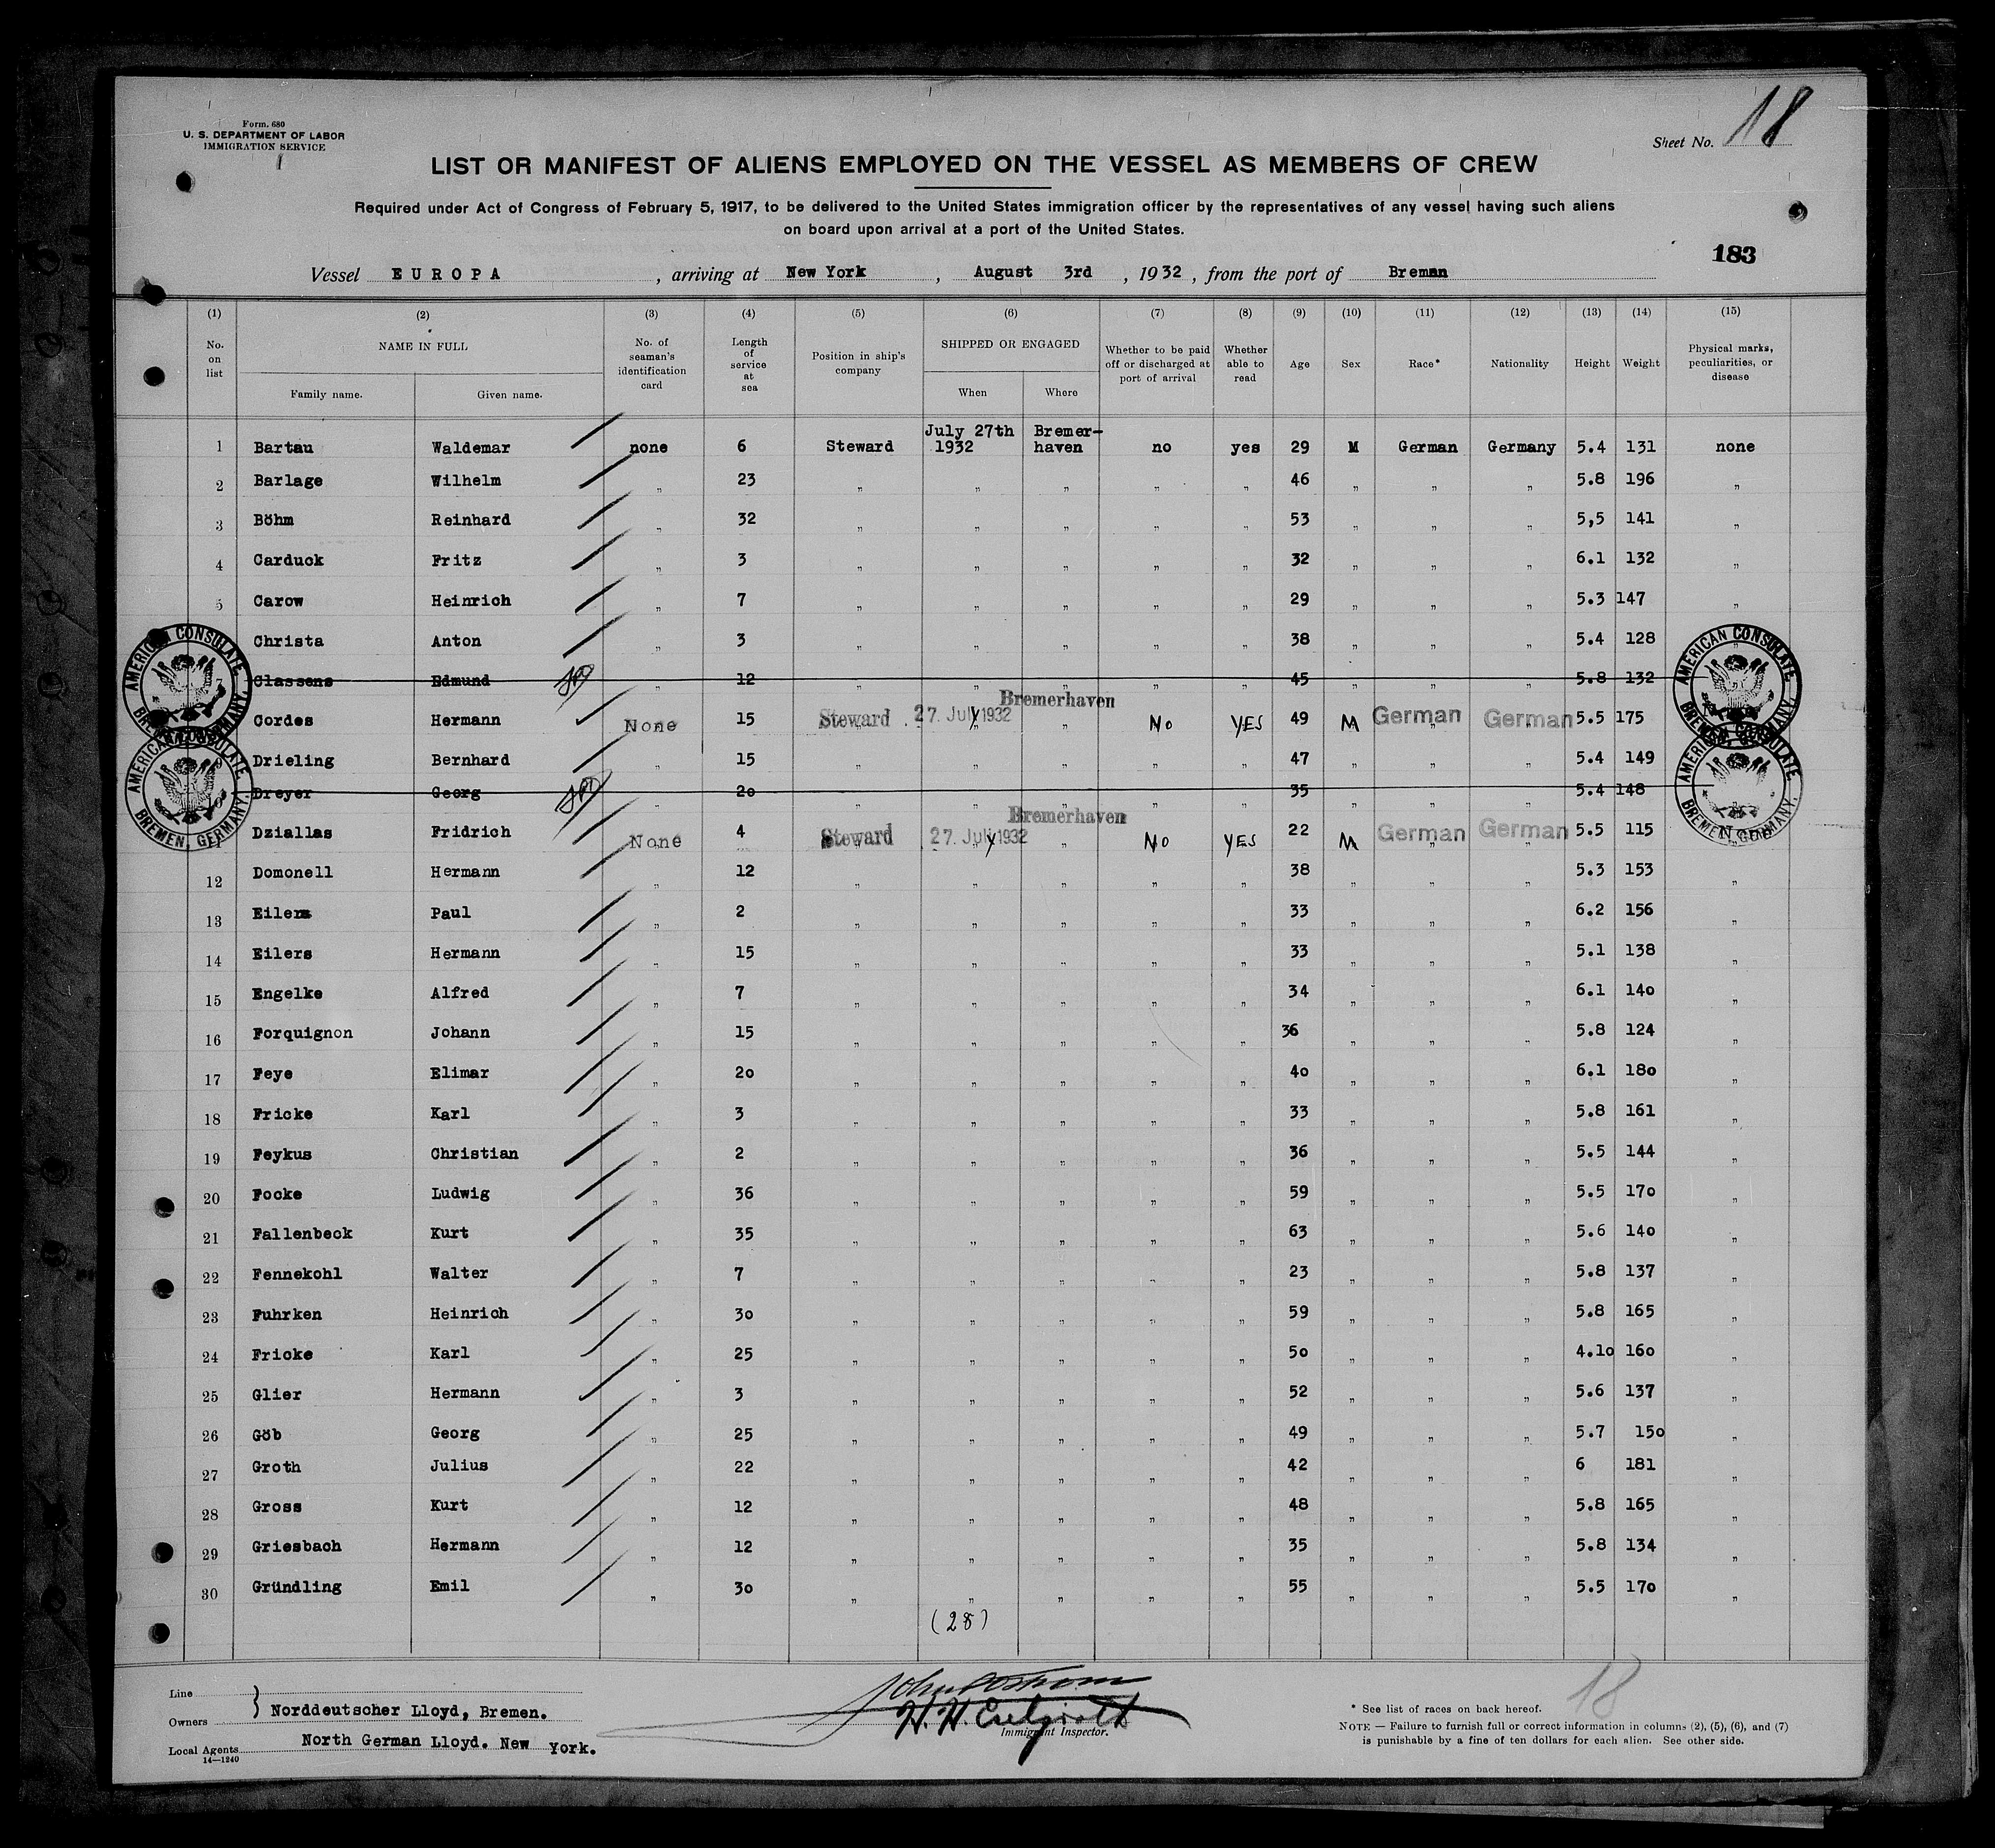 Form. 680
U. S. DEPARTMENT OF LABOR
IMMIGRATION SERVICE
Sheet No. 18
LIST OR MANIFEST OF ALIENS EMPLOYED ON THE VESSEL AS MEMBERS OF CREW
Required under Act of Congress of February 5, 1917, to be delivered to the United States immigration officer by the representatives of any vessel having such aliens
on board upon arrival at a port of the United States.
183
Vessel EUROPA , arriving at New York , August 3rd , 1932 , from the port of Bremen
(1) (2) (3) (4) (5) (6) (7) (8) (9) (10) (11) (12) (13) (14) (15)
No. on list NAME IN FULL Family name. Given name. No. of seaman's identification card Length of service at sea Position in ship's company SHIPPED OR ENGAGED When Where Whether to be paid off or discharged at port of arrival Whether able to read Age Sex Race* Nationality Height Weight Physical marks, peculiarities, or disease
1 Bartau Waldemar none 6 Steward July 27th 1932 Bremer-haven no yes 29 M German Germany 5.4 131 none
2 Barlage Wilhelm " 23 " " " " " 46 " " " 5.8 196 "
3 Böhm Reinhard " 32 " " " " " 53 " " " 5,5 141 "
4 Carduck Fritz " 3 " " " " " 32 " " " 6.1 132 "
5 Carow Heinrich " 7 " " " " " 29 " " " 5.3 147 "
Christa Anton " 3 " " " " " 38 " " " 5.4 128
7 Classens Edmund " 12 " " " " " 45 " " " 5.8 132
Cordes Hermann None 15 Steward 27. July 1932 Bremerhaven No YES 49 M German German 5.5 175
9 Drieling Bernhard " 15 " " " " " 47 " " " 5.4 149
10 Dreyer Georg " 20 " " " " " 35 " " " 5.4 148
11 Dziallas Fridrich None 4 Steward 27. July 1932 Bremerhaven No YES 22 M German German 5.5 115 None
12 Domonell Hermann " 12 " " " " " 38 " " " 5.3 153 "
13 Eilers Paul " 2 " " " " " 33 " " " 6.2 156 "
14 Eilers Hermann " 15 " " " " " 33 " " " 5.1 138 "
15 Engelke Alfred " 7 " " " " " 34 " " " 6.1 140 "
16 Forquignon Johann " 15 " " " " " 36 " " " 5.8 124 "
17 Feye Elimar " 20 " " " " " 40 " " " 6.1 180 "
18 Fricke Karl " 3 " " " " " 33 " " " 5.8 161 "
19 Feykus Christian " 2 " " " " " 36 " " " 5.5 144 "
20 Focke Ludwig " 36 " " " " " 59 " " " 5.5 170 "
21 Fallenbeck Kurt " 35 " " " " " 63 " " " 5.6 140 "
22 Fennekohl Walter " 7 " " " " " 23 " " " 5.8 137 "
23 Fuhrken Heinrich " 30 " " " " " 59 " " " 5.8 165 "
24 Fricke Karl " 25 " " " " " 50 " " " 4.10 160 "
25 Glier Hermann " 3 " " " " " 52 " " " 5.6 137 "
26 Göb Georg " 25 " " " " " 49 " " " 5.7 150 "
27 Groth Julius " 22 " " " " " 42 " " " 6 181 "
28 Gross Kurt " 12 " " " " " 48 " " " 5.8 165 "
29 Griesbach Hermann " 12 " " " " " 35 " " " 5.8 134 "
30 Gründling Emil " 30 " " " " " 55 " " " 5.5 170 "
(28)
AMERICAN CONSULATE, BREMEN, GERMANY.
AMERICAN CONSULATE, BREMEN, GERMANY.
AMERICAN CONSULATE, BREMEN, GERMANY.
AMERICAN CONSULATE, BREMEN, GERMANY.
Line
Owners } Norddeutscher Lloyd, Bremen.
Local Agents North German Lloyd. New York.
14—1240
Immigrant Inspector.
18
* See list of races on back hereof.
NOTE — Failure to furnish full or correct information in columns (2), (5), (6), and (7)
is punishable by a fine of ten dollars for each alien. See other side.